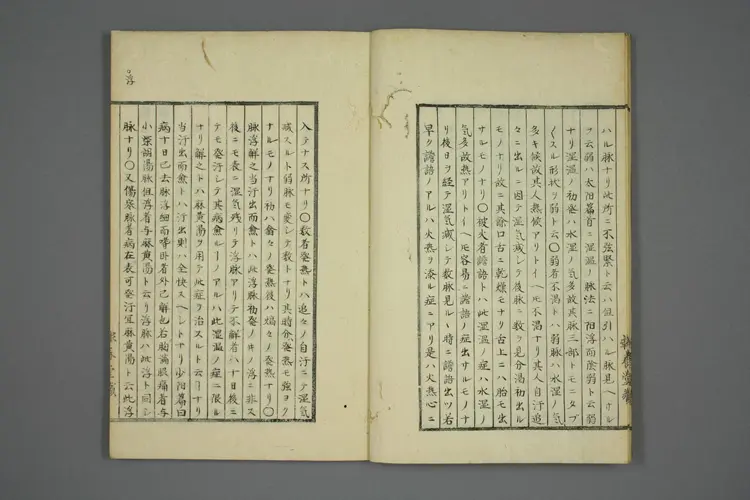 ハル脉ナリ此所ニ不弦緊ト云ハ但引ハル脉見ヘサル
ヲ云弱ハ太陽篇首ニ湿温ノ脉法ニ陽浮而陰弱ト云弱
ナリ湿温ノ初発ハ水湿ノ気多故其脉三部トモニタブ
くスル形状ヲ弱ト云〇弱者不渇トハ弱脉ハ水湿ノ気
多キ候故其人熱候アリトイヘ𪜈不渇ナリ其人自汗追
々ニ出ルニ因テ湿気減シテ後脉ニ数ヲ見分渇初出ル
モノナリ故ニ其餘口舌ニ乾燥モナリ舌上ニハ胎モ出
サルモノナリ〇被火者譫語トハ此湿温ノ症ハ水湿ノ
気多故熱アリトイヘ𪜈容易ニ譫語ノ症出サルモノナ
リ後日ヲ経テ湿気減シテ数脉見ル丶時ニ譫語出ツ若
早ク譫語ノアルハ火熱ヲ添ル症ニアリ是ハ火熱心ニ
〇浮
入テナス所ナリ〇数者発熱トハ追々ノ自汗ニテ湿気
減スルト弱脉モ変シテ数トナリ其時分発熱モ強ヨク
ナルモノナリ初ハ翕々ノ発熱後ハ熇々ノ発熱ナリ〇
脉浮解之当汗出而愈トハ此浮脉初発ノキノ浮ニ非ス
後ニモ表ニ湿気残リテ浮脉アリテ不解者ハ十日後ニ
テモ発汗シテ其病愈ルヿノアルハ此湿温ノ症ニ限ル
ナリ解之トハ麻黄湯ヲ用テ此症ヲ治スルト云ヿナリ
当汗出而愈トハ汗出則ハ全快スヘシトナリ少陽篇曰
病十日已去脉浮細而嗜卧者外已解也若胸満脇痛者与
小柴胡湯脉但浮者与麻黄湯ト云リ浮脉ハ此浮ト同シ
脉ナリ〇又傷寒脉着病在表可発汗宜麻黄湯ト云此浮